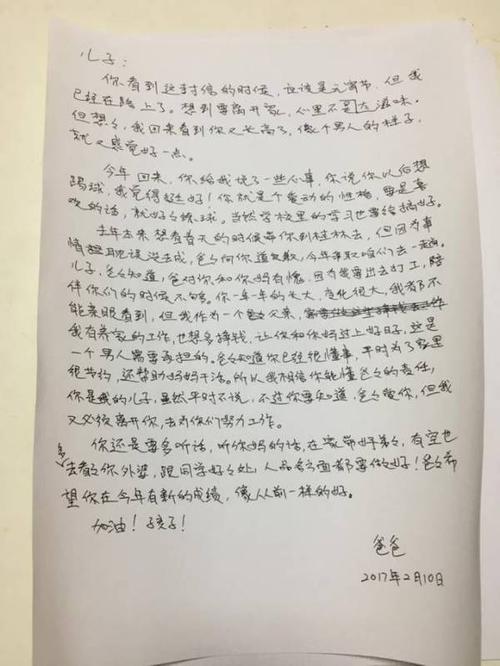 儿子：
你看到这封信的时候，应该是元宵节，但我
已经在路上了。想到要离开家，心里不是太滋味。
但想想，我回来看到你又长高了，像个男人的样子，
就又感觉好一点。
今年回来，你给我说了一些心事，你说你以后想
踢球，我觉得挺好！你就是个爱动的性格，要是喜
欢的话，就好好练球，当然学校里的学习也要给搞好。
去年本来想着春天的时候带你到桂林去，但因为事
情耽误没去成，爸爸向你道歉，今年争取咱们去一趟。
儿子，爸爸知道，爸对你和你妈有愧，因为我要出去打工，陪
伴你们的时候不够。你一年一年的长大，变化很大，我都不
能亲眼看到，但我作为一个父亲，
我有养家的工作，也想多挣钱，让你和你妈过上好日子，这是
一个男人需要承担的。爸爸知道你已经很懂事，平时为了家里
很节约，还帮助妈妈干活。所以我相信你能懂爸爸的责任，
你是我的儿子，虽然平时不说，不过你要知道，爸爸爱你，但我
又必须离开你，去为你们努力工作。
你还是要多听话，听你妈的话，在家带好弟弟，有空也
多去看看你外婆，跟同学好好处，人品各方面都要做好！爸爸希
望你在今年有新的成绩，像从前一样的好。
加油！孩子！
爸爸
2017年2月10日